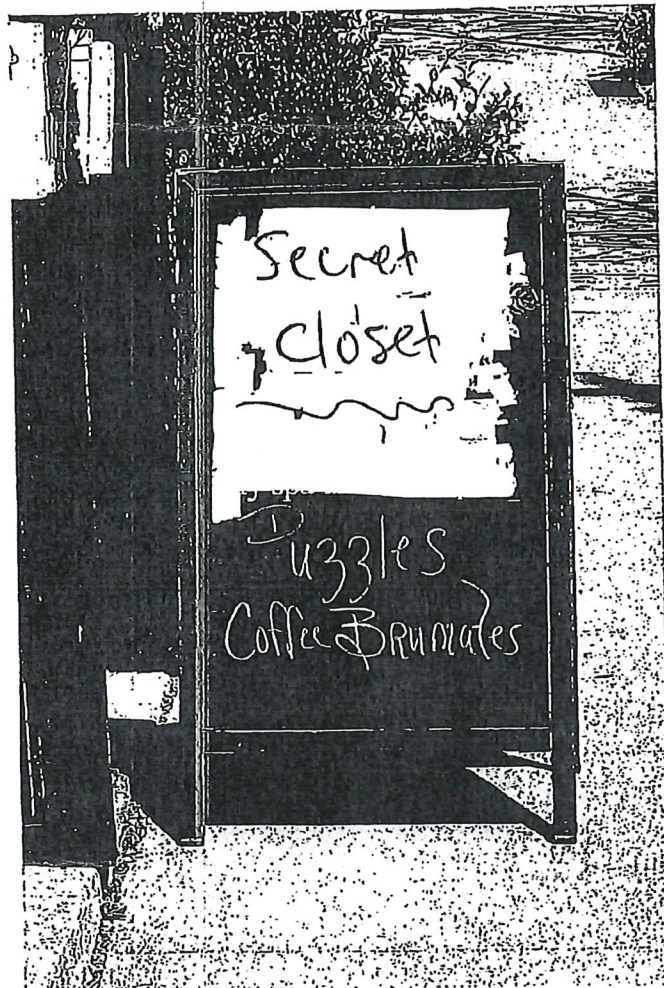 Secret
Closet
Puzzles
Coffee Brumates